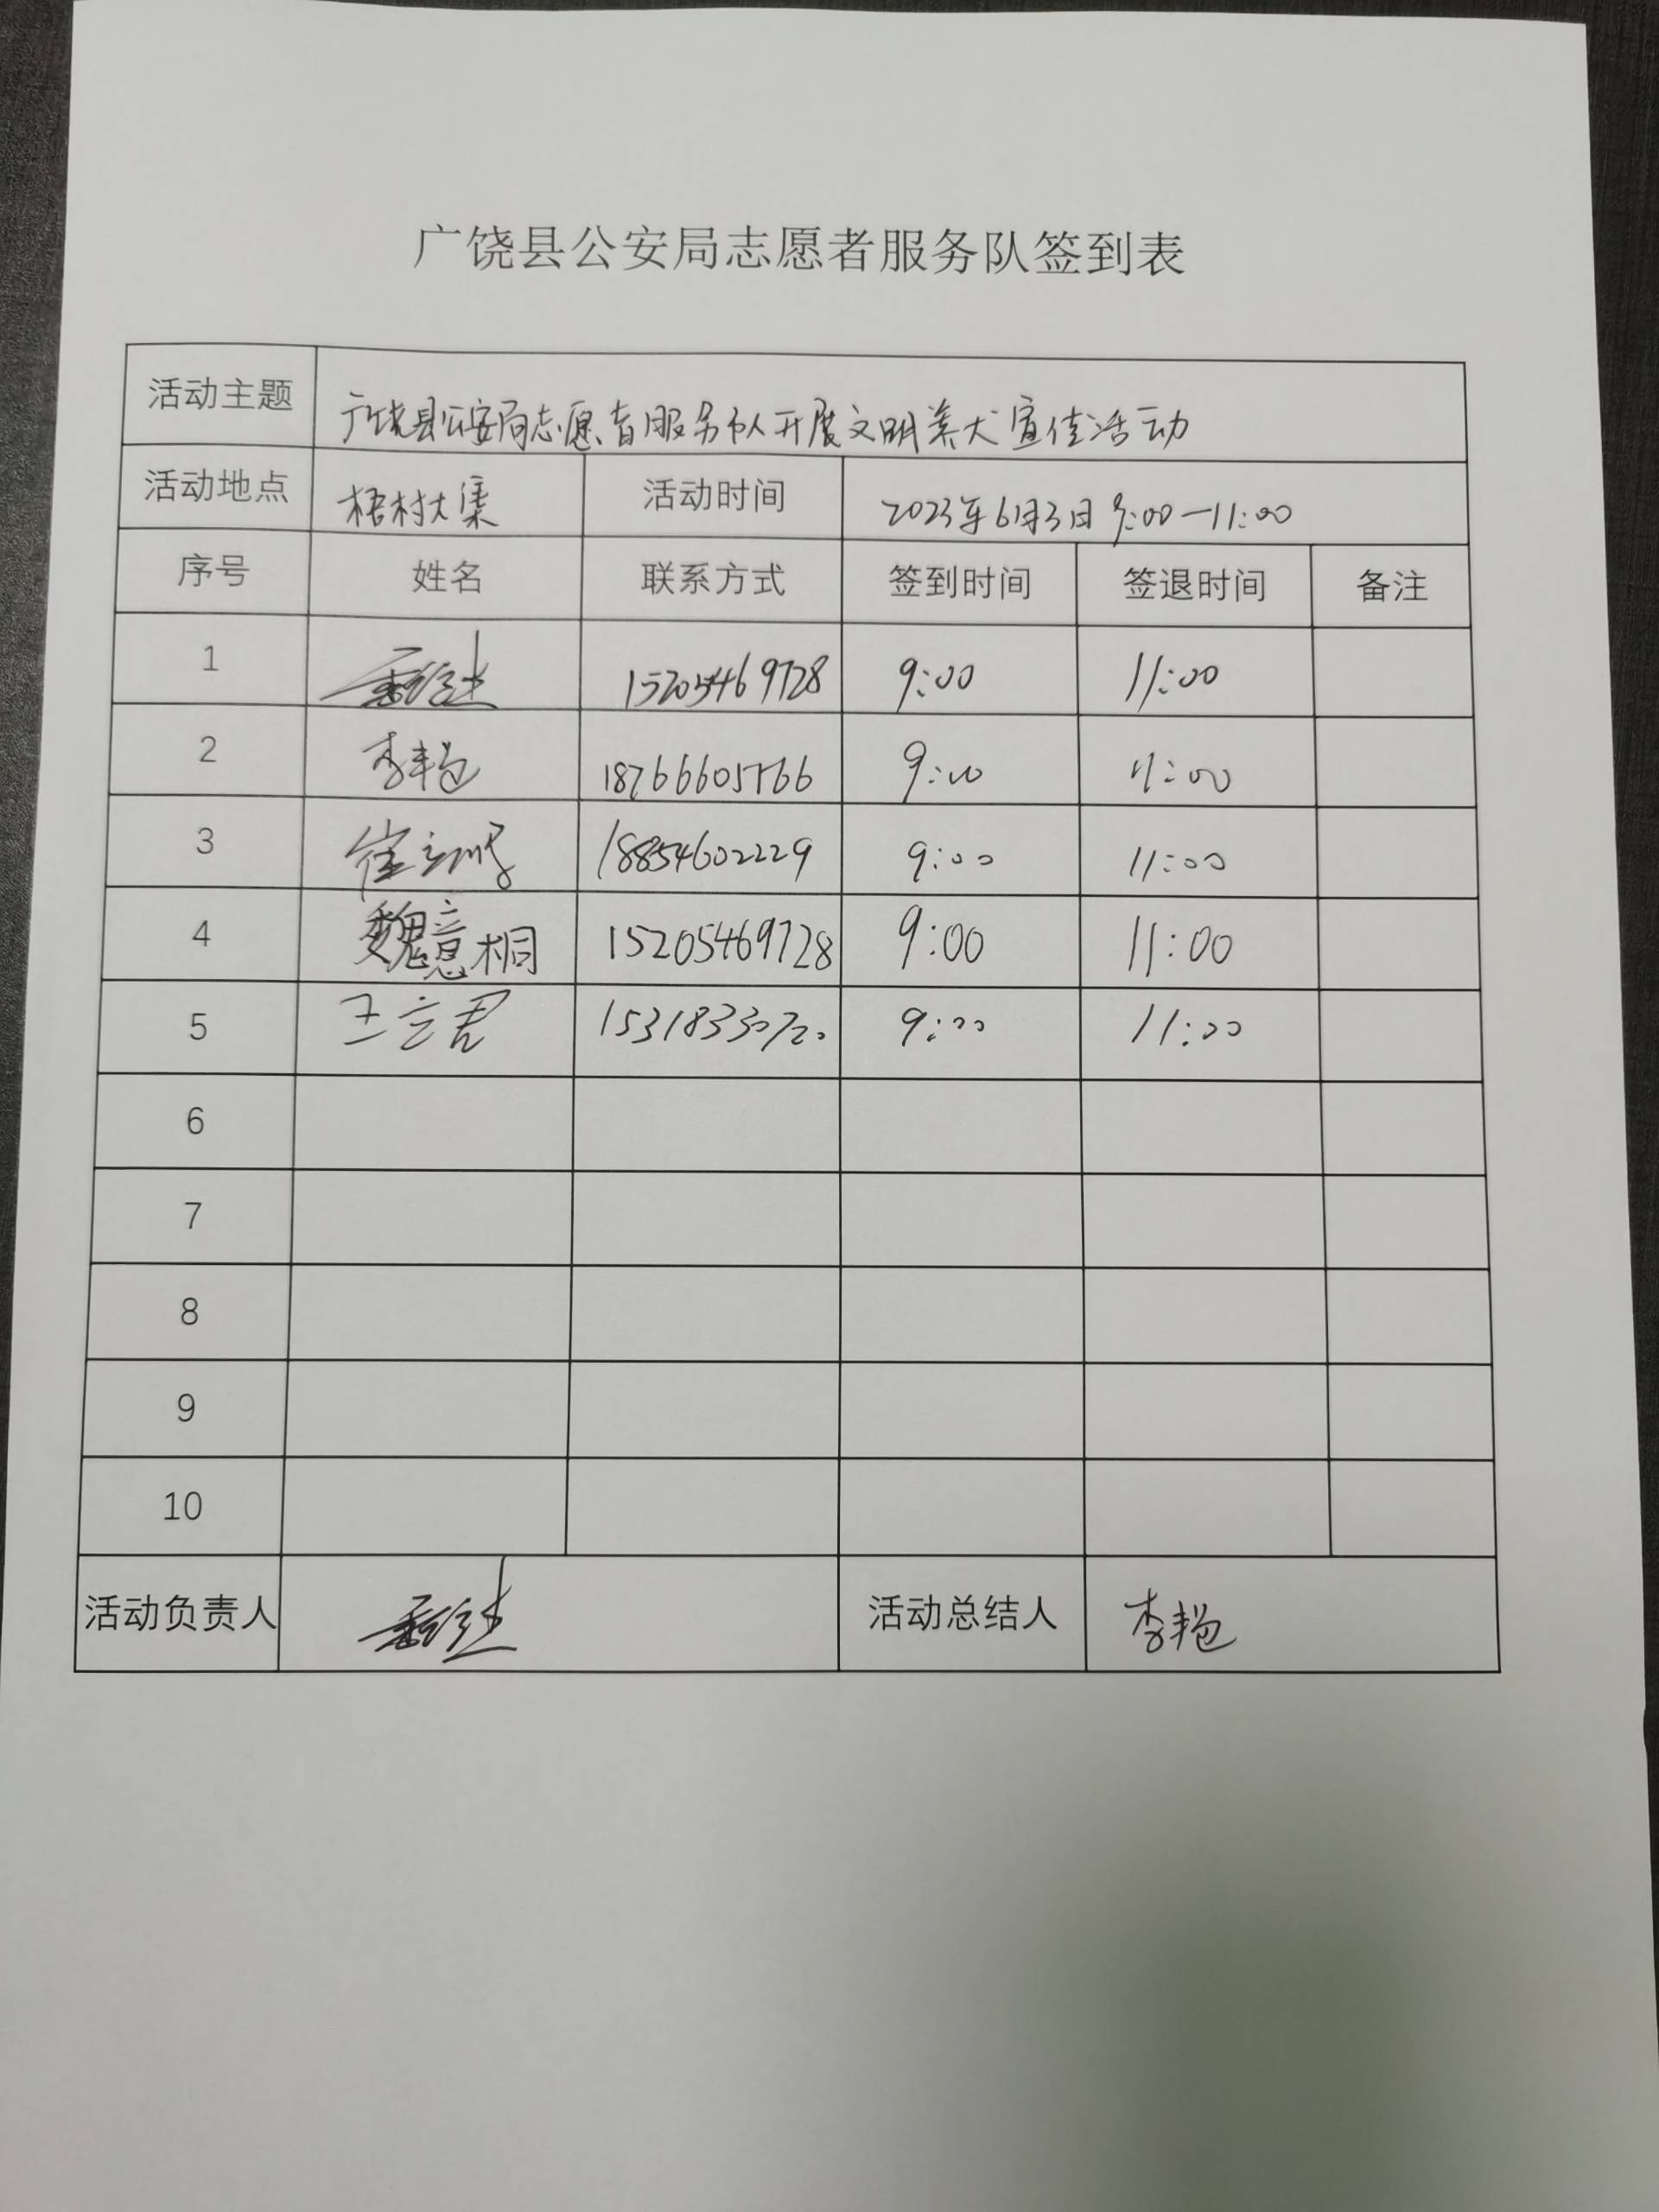 广饶县公安局志愿者服务队签到表
活动主题 广饶县公安局志愿者服务队开展文明养犬宣传活动
活动地点 梧村大集 活动时间 2023年6月3日 9:00—11:00
序号 姓名 联系方式 签到时间 签退时间 备注
1 15205469728 9:00 11:00
2 李艳 18766605766 9:00 11:00
3 崔 18854602229 9:00 11:00
4 魏意桐 15205469728 9:00 11:00
5 王立君 15318330720 9:00 11:00
6
7
8
9
10
活动负责人 活动总结人 李艳